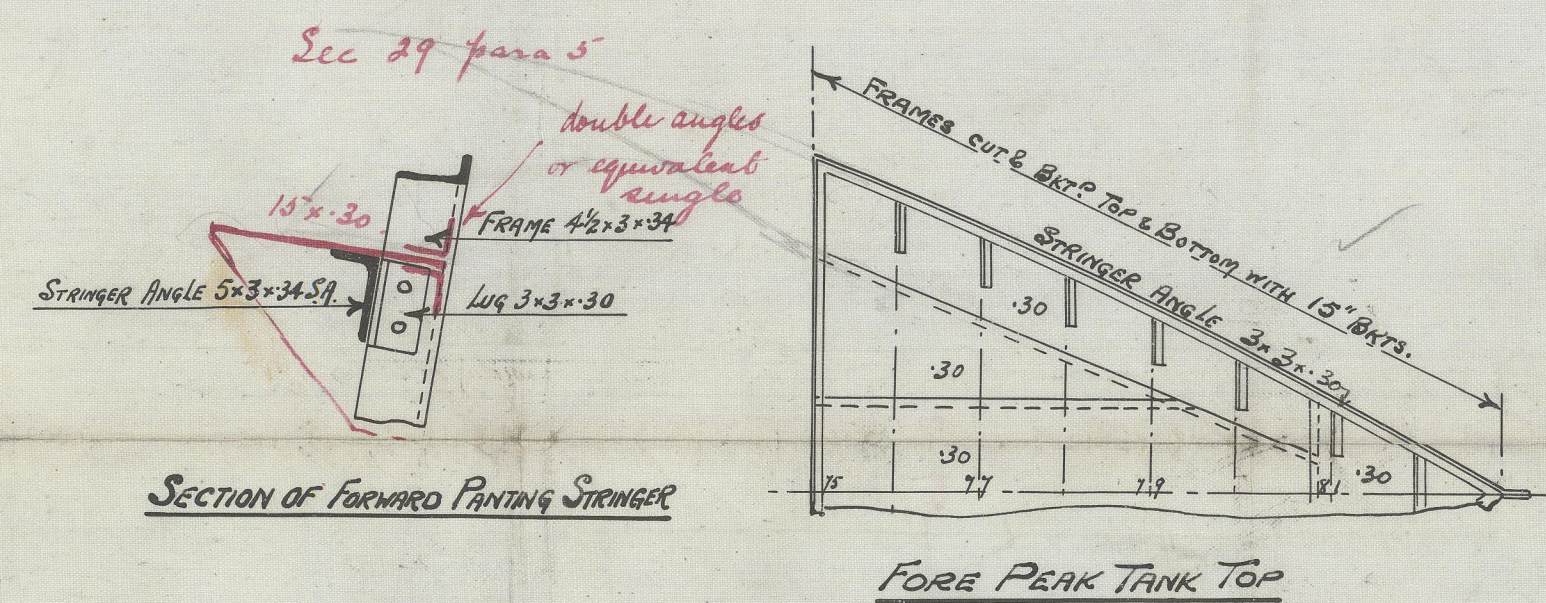 Sec 29 para 5
double angles
or equivalent
single
15 x .30
FRAME 4½ x 3 x .34
STRINGER ANGLE 5 x 3 x .34 S.A.
LUG 3 x 3 x .30
SECTION OF FORWARD PANTING STRINGER
FRAMES CUT & BKTD TOP & BOTTOM WITH 15" BKTS.
STRINGER ANGLE 3 x 3 x .30
.30
.30
.30
.30
75
77
79
81
FORE PEAK TANK TOP